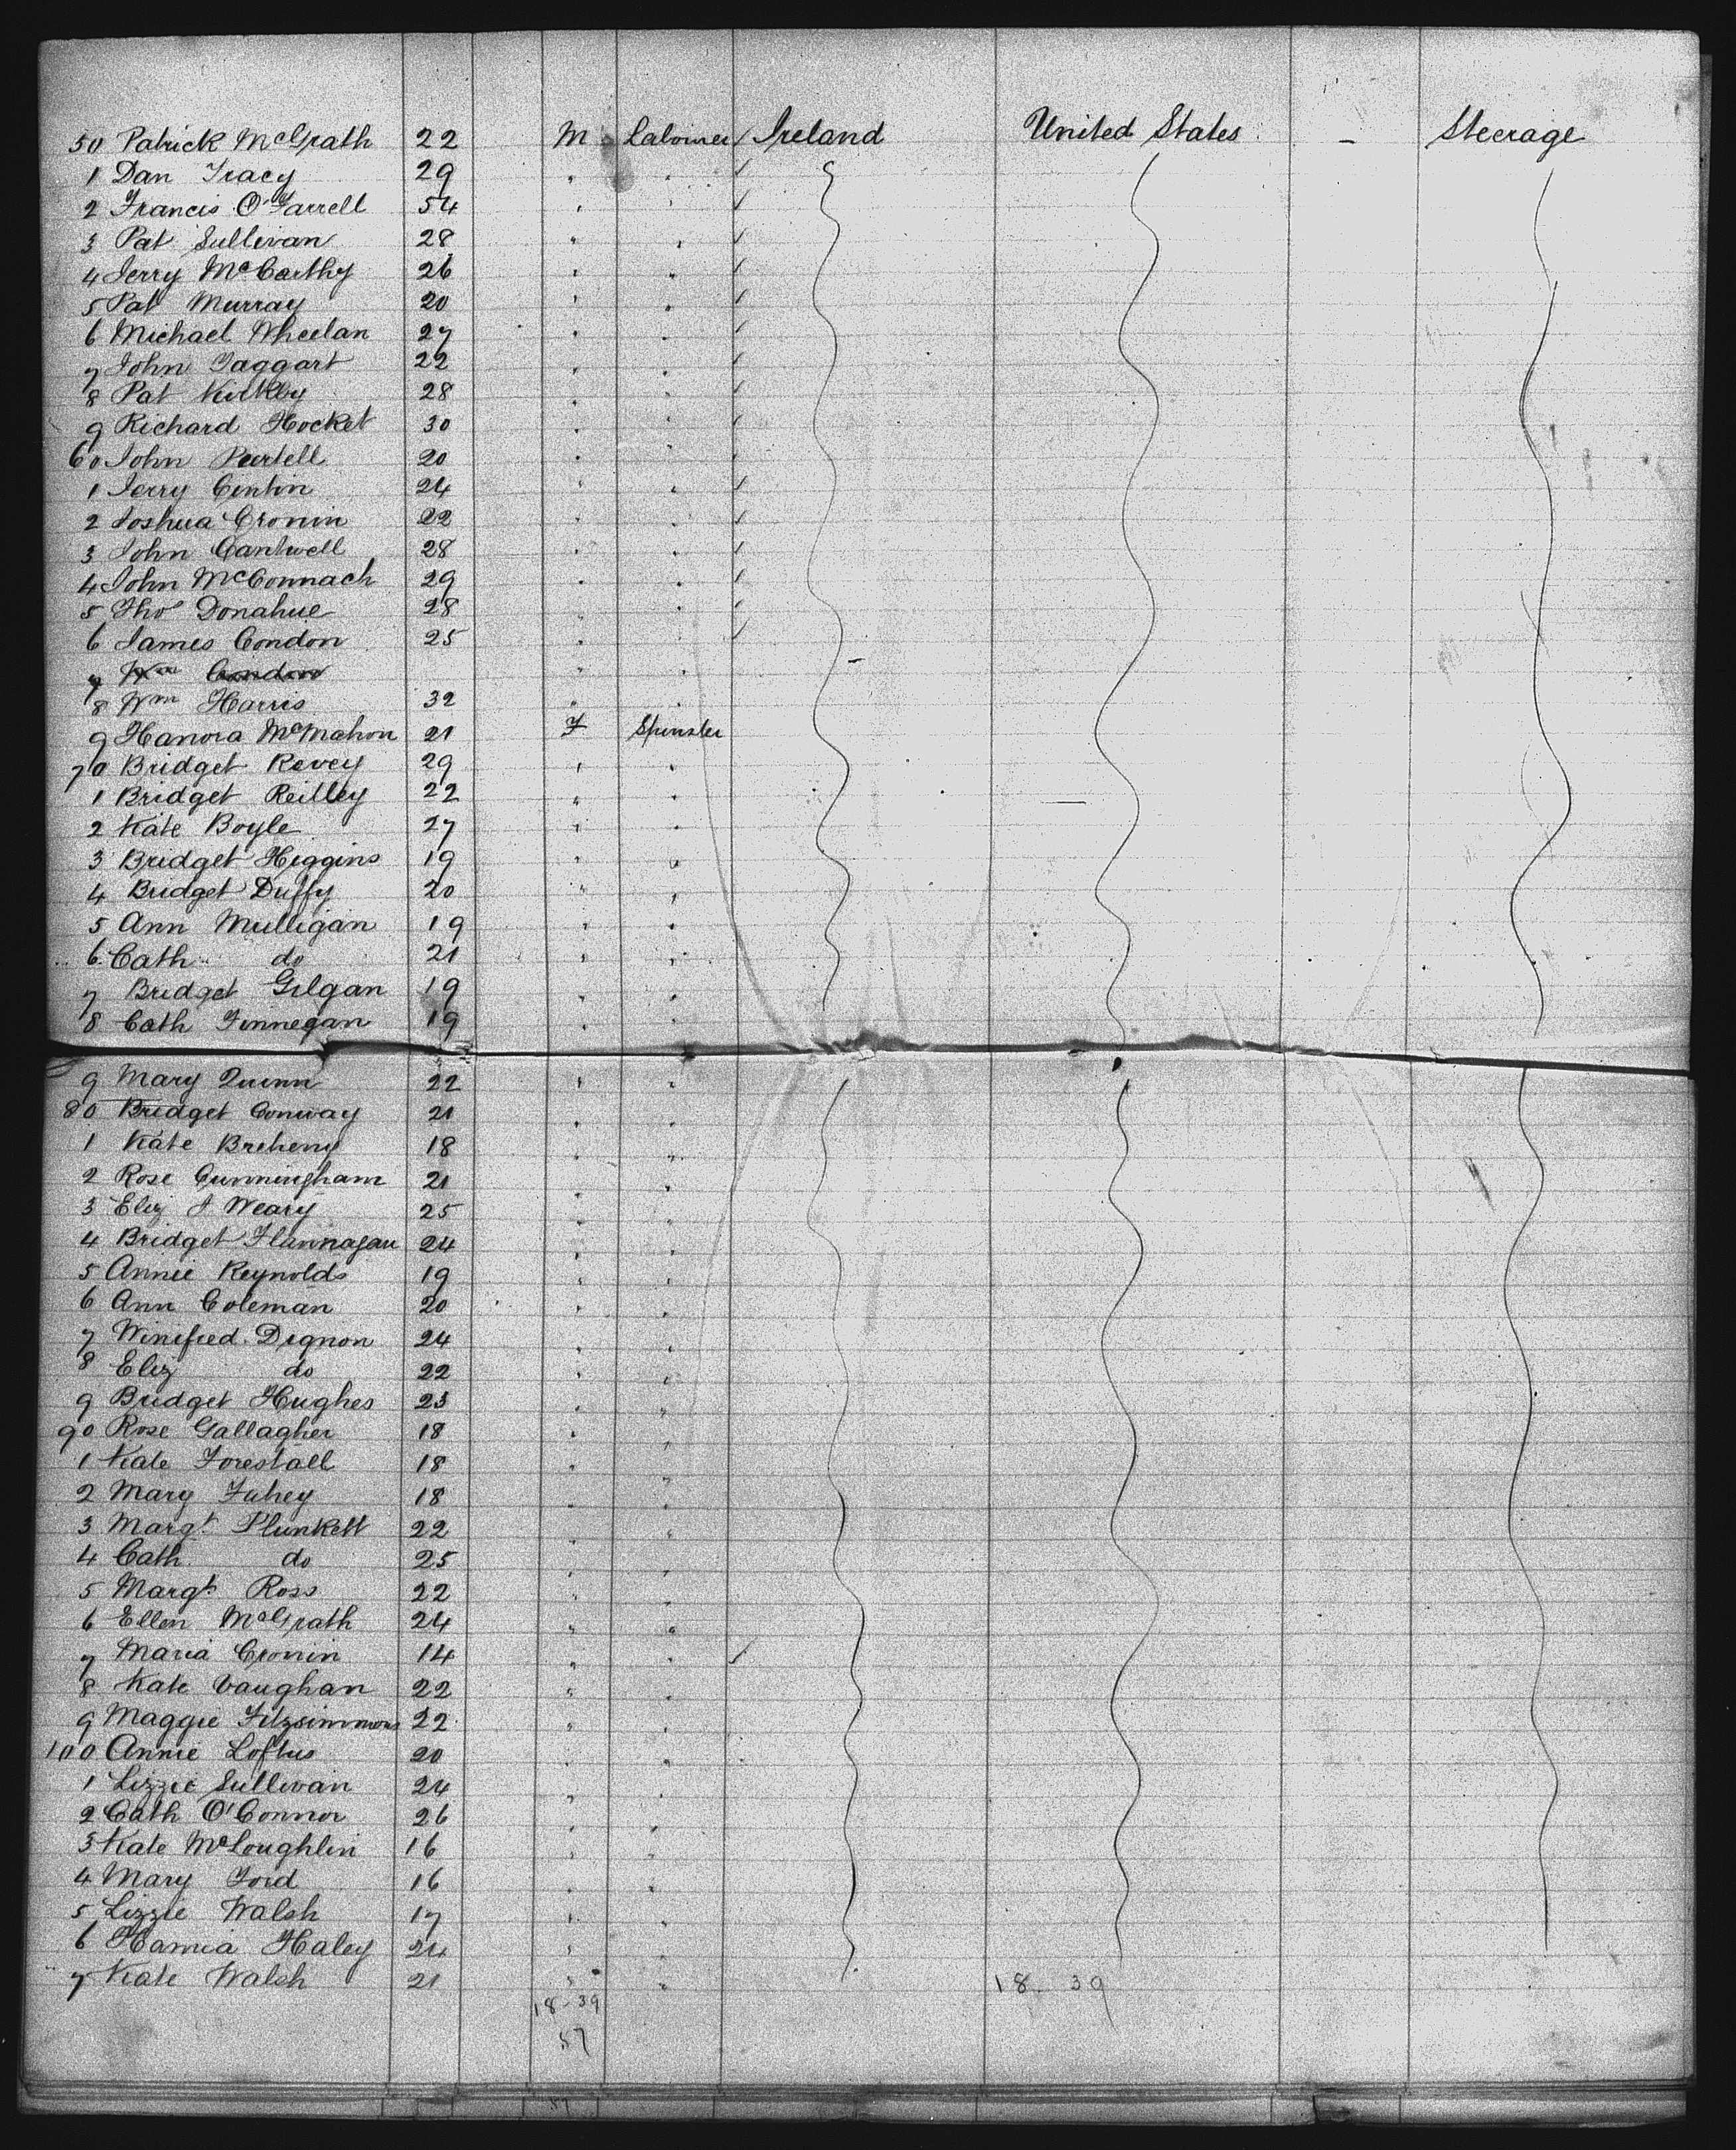 50 Patrick McGrath 22 M Labourer Ireland United States - Steerage
1 Dan Tracy 29 " "
2 Francis O'Farrell 54 " "
3 Pat Sullivan 28 " "
4 Jerry McCarthy 26 " "
5 Pat Murray 20 " "
6 Michael Wheelan 27 " "
7 John Taggart 22 " "
8 Pat Kirkby 28 " "
9 Richard Hocket 30 " "
60 John Purtell 20 " "
1 Jerry 24 " "
2 Joshua Cronin 22 " "
3 John Cantwell 28 " "
4 John McConnach 29 " "
5 Thos Donahue 28 " "
6 James Condon 25 " "
7 Wm Condon " "
8 Wm Harris 32 " "
9 Hanora McMahon 21 F Spinster
70 Bridget 29 " "
1 Bridget Reilley 22 " "
2 Kate Boyle 27 " "
3 Bridget Higgins 19 " "
4 Bridget Duffy 20 " "
5 Ann Mulligan 19 " "
6 Cath do 21 " "
7 Bridget Gilgan 19 " "
8 Cath Finnegan 19 " "
9 Mary Quinn 22 " "
80 Bridget Conway 21 " "
1 Kate Breheny 18 " "
2 Rose Cunningham 21 " "
3 Eliz J Weary 25 " "
4 Bridget Flannagan 24 " "
5 Annie Reynolds 19 " "
6 Ann Coleman 20 " "
7 Winifred Dignon 24 " "
8 Eliz do 22 " "
9 Bridget Hughes 23 " "
90 Rose Gallagher 18 " "
1 Kate Forestall 18 " "
2 Mary Fahey 18 " "
3 Margt Plunkett 22 " "
4 Cath do 25 " "
5 Margt Ross 22 " "
6 Ellen McGrath 24 " "
7 Maria Cronin 14 " "
8 Kate Vaughan 22 " "
9 Maggie Fitzsimmons 22 " "
100 Annie Loftus 20 " "
1 Lizzie Sullivan 24 " "
2 Cath O'Connor 26 " "
3 Kate McLoughlin 16 " "
4 Mary Ford 16 " "
5 Lizzie Walsh 17 " "
6 Haley 24 " "
7 Kate Walsh 21 " "
18-39 18-39
57
57